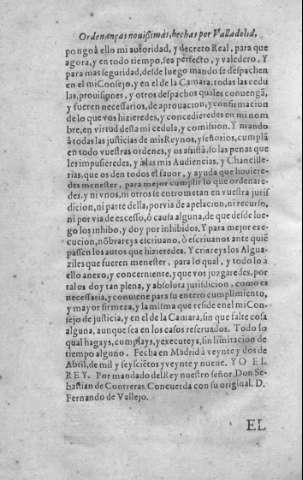 Ordenanças nouissimas, hechas por Valladolid,
pongo à ello mi autoridad, y decreto Real, para que
agora, y en todo tiempo, sea perfecto, y valedero. Y
para mas seguridad, desde luego mando se despachen
en el mi Consejo, y en el de la Camara, todas las cedu
las, prouisiones, y otros despachos quales conuengã,
y fueren necessarios, de aprouacion, y confirmacion
de lo que vos hizieredes, y concedieredes en mi nom
bre, en virtud desta mi cedula, y comision. Y mando
à todas las justicias de mis Reynos, y señorios, cumplã
en todo vuestras ordenes, y os asistã, so las penas que
les impusieredes, y a las mis Audiencias, y Chancille-
rias, que os den todo el fauor, y ayuda que huuiere-
des menester, para mejor cumplir lo que ordenare-
des, y ni vnos, ni otros se entrometan en vuestra jurif
dicion, ni parte della, por via de apelacion, ni recurso,
ni por via de excesso, ò causa alguna, de que desde lue-
go los inhibo, y doy por inhibidos. Y para mejor exe-
cucion, nõbrareys escriuano, ò escriuanos ante quiẽ
passen los autos que hizieredes. Y criareys los Algua-
ziles que fueren menester, para lo qual, y todo lo a
ello anexo, y concerniente, y que vos juzgaredes por
tal os doy tan plena, y absoluta jurisdicion, como es
necessaria, y conuiene para su entero cumplimiento,
y mayor firmeza, y la misma que reside en el mi Con-
sejo de justicia, y en el de la Camara, sin que falte cosa
alguna, aunque sea en los casos reseruados. Todo lo
qual hagays, cumplays, y executeys, sin limitacion de
tiempo alguno. Fecha en Madrid à veynte y dos de
Abril, de mil y seyscientos y veynte y nueue. YO EL
REY. Por mandado del Rey nuestro señor. Don Se-
bastian de Contreras. Concuerda con su original. D.
Fernando de Vallejo.
EL